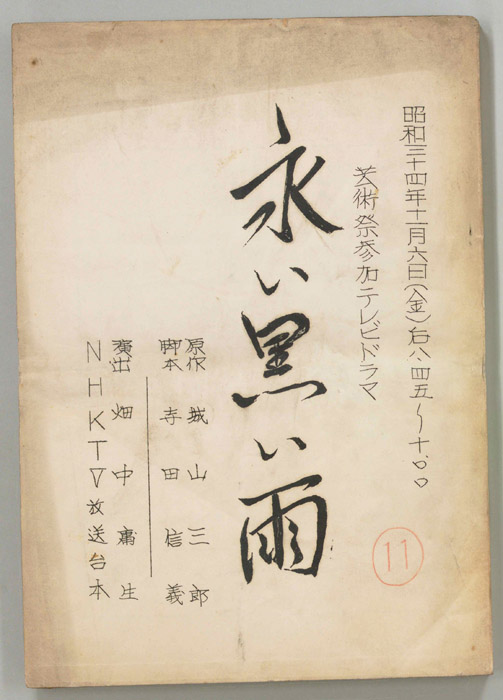 昭和三十四年十一月六日(金)后八四五〜十.〇〇
芸術祭参加テレビドラマ
永い黒い雨
原作 城山三郎
脚本 寺田信義
演出 畑中庸生
NHKTV放送台本
11